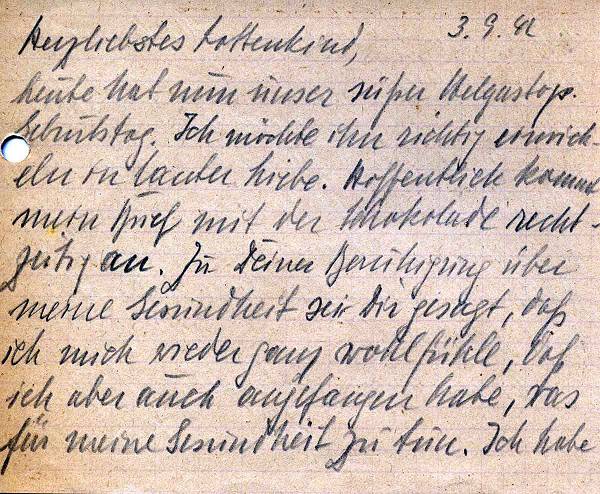 3.9.42
Herzliebstes Lottenkind,
heute hat nun unser süßer
Geburtstag. Ich möchte ihn richtig einwick-
eln in lauter Liebe. Hoffentlich kommt
mein Brief mit der Schokolade recht-
zeitig an. Zu Deiner Beruhigung über
meine Gesundheit sei Dir gesagt, daß
ich mich wieder ganz wohl fühle, daß
ich aber auch angefangen habe, was
für meine Gesundheit zu tun. Ich habe